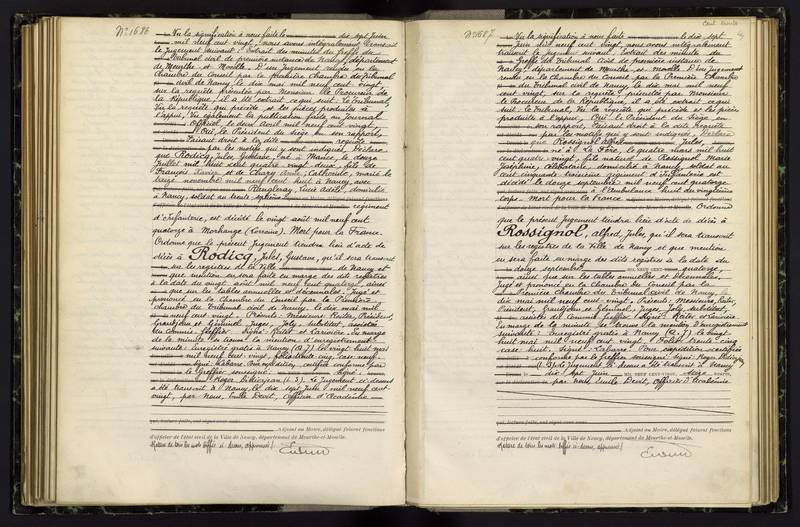 N° 1686
Vu la signification à nous faite le dix sept Juin
mil neuf cent vingt, nous avons intégralement transcrit
le jugement suivant: Extrait des minutes du greffe du
Tribunal civil de première instance de Nancy, département
de Meurthe et Moselle. D'un jugement rendu en la
chambre du Conseil par la première chambre du Tribunal
civil de Nancy le dix mai mil neuf cent vingt
sur la requête présentée par Monsieur le Procureur de
la République, il a été extrait ce qui suit: Le Tribunal,
Vu la requête qui précède et les pièces produites à
l'appui, Vu également la publication faite au Journal
Officiel, le deux Avril mil neuf cent vingt,
Oui le Président du siège en son rapport,
Faisant droit à la dite requête
par les motifs qui y sont indiqués, Déclare
que Rodicq, Jules, Gustave, né à Nancy, le douze
Juillet mil huit cent quatre vingt deux, fils de
François Xavier et de Chary Catherine, marié le
treize novembre mil neuf cent huit à Nancy, avec
Lucie Adèle, domicilié
à Nancy, soldat au trente septième
régiment
d'Infanterie, est décédé le vingt août mil neuf cent
quatorze à Morhange (Lorraine). Mort pour la France.
Ordonne que le présent jugement tiendra lieu d'acte de
décès à Rodicq, Jules, Gustave, qu'il sera transcrit
sur les registres de la Ville de Nancy et
que mention en sera faite en marge des dits registres
à la date du vingt août mil neuf cent quatorze, ainsi
que sur les tables annuelles et décennales. Jugé et
prononcé en la Chambre du Conseil par la Première
chambre du Tribunal civil de Nancy, le dix mai mil
neuf cent vingt. Présents: Messieurs Reiter, Président,
Grandjean et Juges, Joly, substitut, assistés
du Commis greffier. Signé: Reiter et Larivière. En marge
de la minute se trouve la mention d'enregistrement
suivante: Enregistré gratis à Nancy (A.J.) le vingt huit mai
mil neuf cent vingt, folio trente cinq, case neuf.
Pour expédition certifiée conforme par
le Greffier soussigné. Signé:
Roger (L.S.). Le jugement ci dessus
a été transcrit à Nancy le dix sept Juin mil neuf cent
vingt, par Nous, Emile Devit, Officier d'Académie
qui, lecture faite, ont signé avec nous.
Adjoint au Maire, délégué faisant fonctions
d'officier de l'état civil de la Ville de Nancy, département de Meurthe-et-Moselle.
Rature de tous les mots biffés ci-dessus, approuvée/.
N° 1687
Vu la signification à nous faite le dix sept
Juin mil neuf cent vingt, nous avons intégralement
transcrit le jugement suivant: Extrait des minutes du
greffe du Tribunal civil de première instance de
Nancy, département de Meurthe et Moselle. D'un jugement
rendu en la Chambre du Conseil par la Première Chambre
du Tribunal civil de Nancy, le dix mai mil neuf
cent vingt, sur la requête présentée par Monsieur
le Procureur de la République, il a été extrait ce qui
suit: Le Tribunal, Vu la requête qui précède et les pièces
produites à l'appui, Oui le Président du siège en
son rapport, Faisant droit à la dite requête
par les motifs qui y sont indiqués, Déclare
que Rossignol Alfred, Jules,
né à La Fère, le quatre mars mil huit
cent quatre vingt, fils naturel de Rossignol Marie
Joséphine, célibataire, domicilié à Nancy, soldat au
cent cinquante troisième régiment d'Infanterie est
décédé le douze septembre mil neuf cent quatorze
à l'ambulance huit du vingtième
corps. Mort pour la France
Ordonne
que le présent jugement tiendra lieu d'acte de décès à
Rossignol, Alfred, Jules, qu'il sera transcrit
sur les registres de la Ville de Nancy et que mention
en sera faite en marge des dits registres à la date du
douze septembre mil neuf cent quatorze,
ainsi que sur les tables annuelles et décennales.
Jugé et prononcé en la Chambre du Conseil par la
Première Chambre du Tribunal civil de Nancy, le
dix mai mil neuf cent vingt. Présents: Messieurs Reiter,
Président, Grandjean et Juges, Joly, substitut,
assistés du Commis Greffier. Signé: Reiter et Larivière.
En marge de la minute se trouve la mention d'enregistrement
suivante: Enregistré gratis à Nancy (A.J.) le vingt
huit mai mil neuf cent vingt, Folio trente cinq
case huit. Pour expédition certifiée
conforme par le greffier soussigné. Signé: Roger
(L.S). Le jugement ci dessus a été transcrit à Nancy
le dix sept Juin mil neuf cent vingt,
par Nous, Emile Devit, Officier d'Académie
qui, lecture faite, ont signé avec nous.
Adjoint au Maire, délégué faisant fonctions
d'officier de l'état civil de la Ville de Nancy, département de Meurthe-et-Moselle.
Rature de tous les mots biffés ci-dessus, approuvée/.